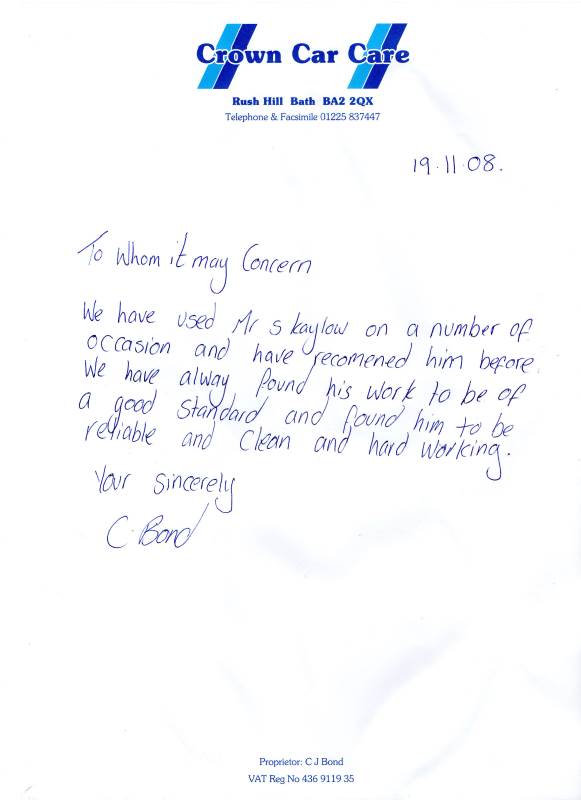 Crown Car Care
Rush Hill Bath BA2 2QX
Telephone & Facsimile 01225 837447
19.11.08.
To Whom it may Concern
We have used Mr S Kaylow on a number of
occasion and have recomened him before.
We have alway found his work to be of
a good standard and found him to be
reliable and Clean and hard working.
Your sincerely
C. Bond
Proprietor: C J Bond
VAT Reg No 436 9119 35